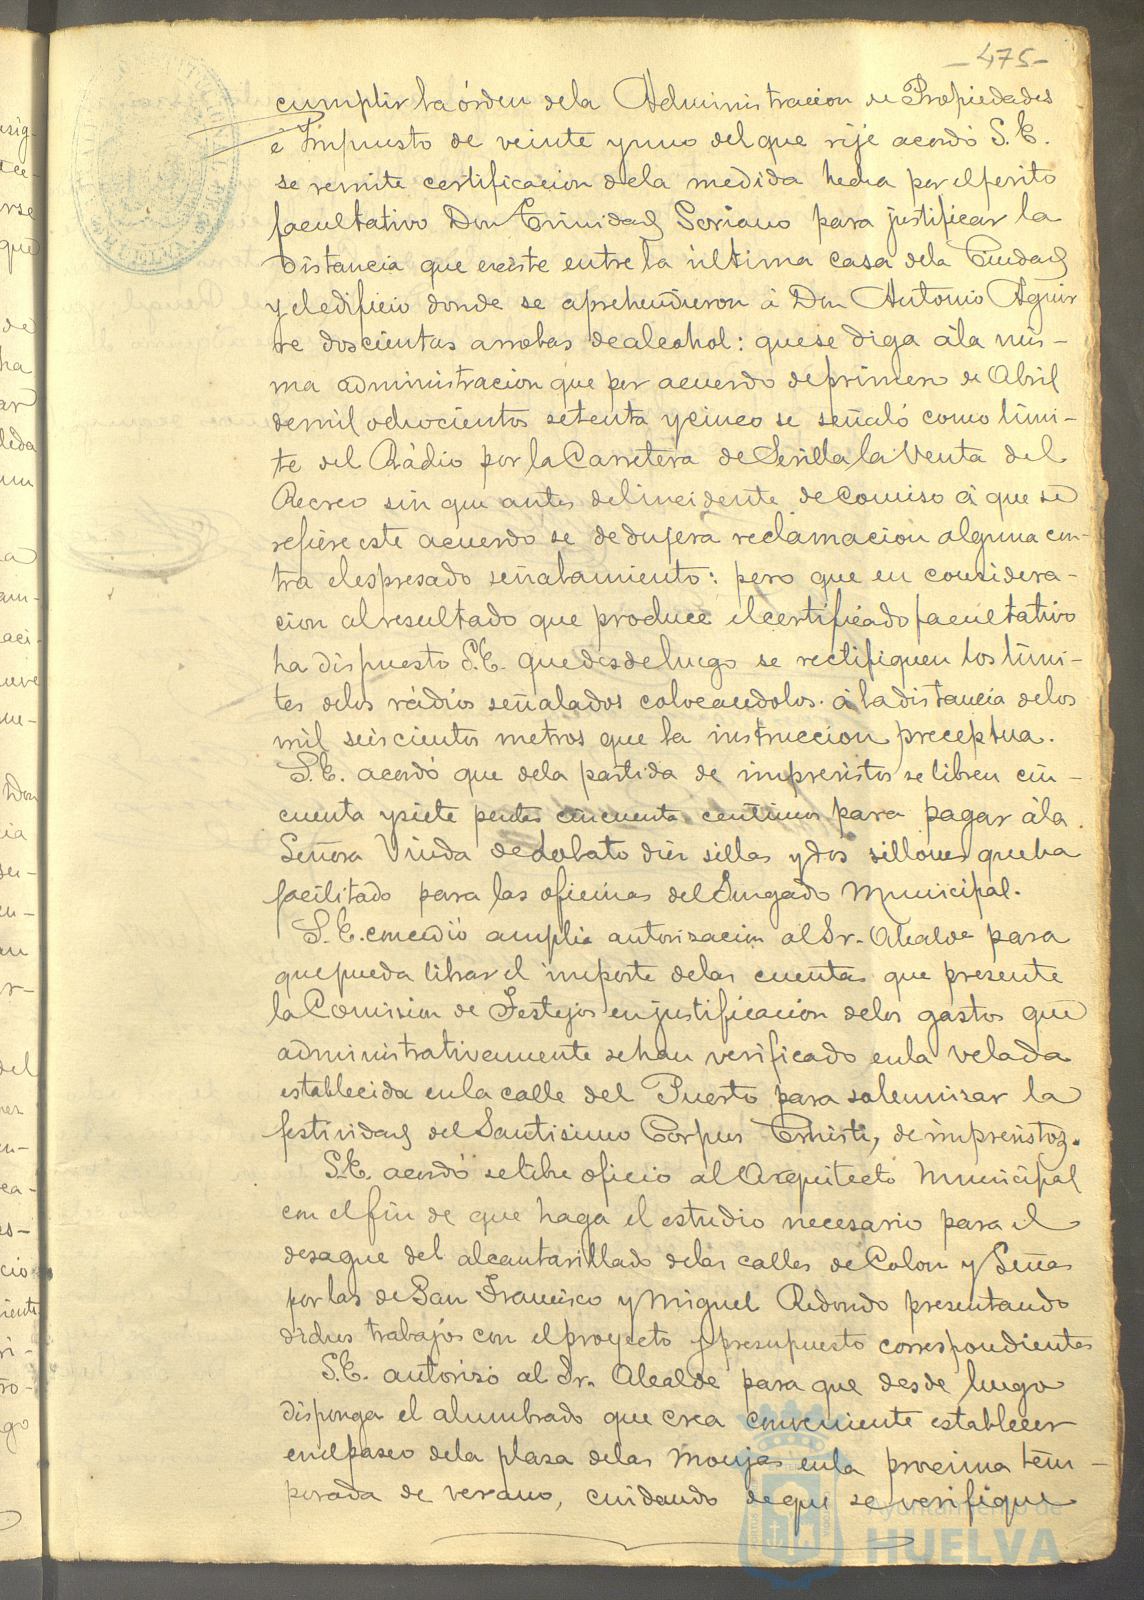 -475-
cumplir la órden dela Administracion de Propiedades
é Impuesto de veinte y uno del que rije acordó S. E.
se remite certificacion dela medida hecha por el perito
facultativo Don Trinidad Soriano para justificar la
distancia que ecsiste entre la última casa dela Ciudad
y el edificio donde se aprehendieron á Don Antonio Aguir
re doscientas arrobas de alcohol: que se diga á la mis-
ma administracion que por acuerdo de primero de Abril
de mil ochocientos setenta y cinco se señaló como límí-
te del Rádio por la Carretera de Sevilla la Venta del
Recreo sin que antes del incidente de comiso á que se
refiere este acuerdo se dedujera reclamacion alguna con-
tra el espresado señalamiento: pero que en considera-
cion al resultado que produce el certificado facultativo
ha dispuesto S.E. que desde luego se rectifiquen los lími-
tes delos rádios señalados colocandolos á la distancia delos
mil seiscientos metros que la instruccion preceptua.
S.E. acordó que dela partida de imprevistos se libren cin-
cuenta y siete pesetas cincuenta centimos para pagar á la
Señora Viuda de Lobato diez sillas y dos sillones que ha
facilitado para las oficinas del Juzgado Municipal.
S.E. concedió amplia autorizacion al Sr. Alcalde para
que pueda librar el importe delas cuentas que presente
la Comision de Festejos en justificacion delos gastos que
administrativamente se han verificado en la velada
establecida en la calle del Puerto para solemnizar la
festividad del Santisimo Corpus Christi, de imprevistos.
S.E. acordó se libre oficio al Arquitecto Municipal
con el fin de que haga el estudio necesario para el
desague del alcantarillado delas calles de Colon y Señas
por las de San Francisco y Miguel Redondo presentando
dichos trabajos con el proyecto y presupuesto correspondientes
S.E. autorizó al Sr. Alcalde para que desde luego
disponga el alumbrado que crea conveniente establecer
en el paseo dela plaza delas Monjas en la procsima tem-
porada de verano, cuidando de que se verifique
Ayuntamiento de
HUELVA